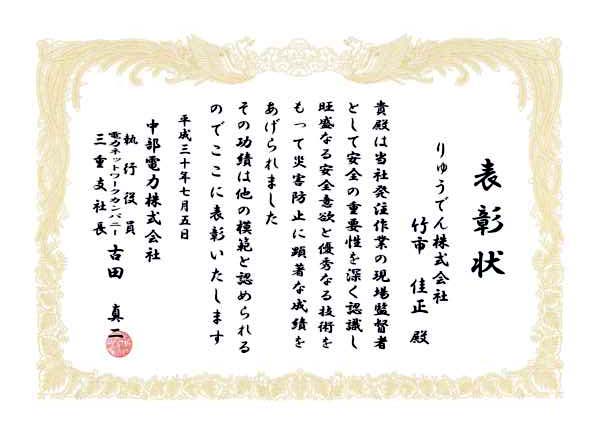 表彰状
りゅうでん株式会社
竹市 佳正 殿
貴殿は当社発注作業の現場監督者
として安全の重要性を深く認識し
旺盛なる安全意欲と優秀なる技術を
もって災害防止に顕著な成績を
あげられました
その功績は他の模範と認められる
のでここに表彰いたします
平成三十年七月五日
中部電力株式会社
執行役員
電力ネットワークカンパニー
三重支社長 古田 真二